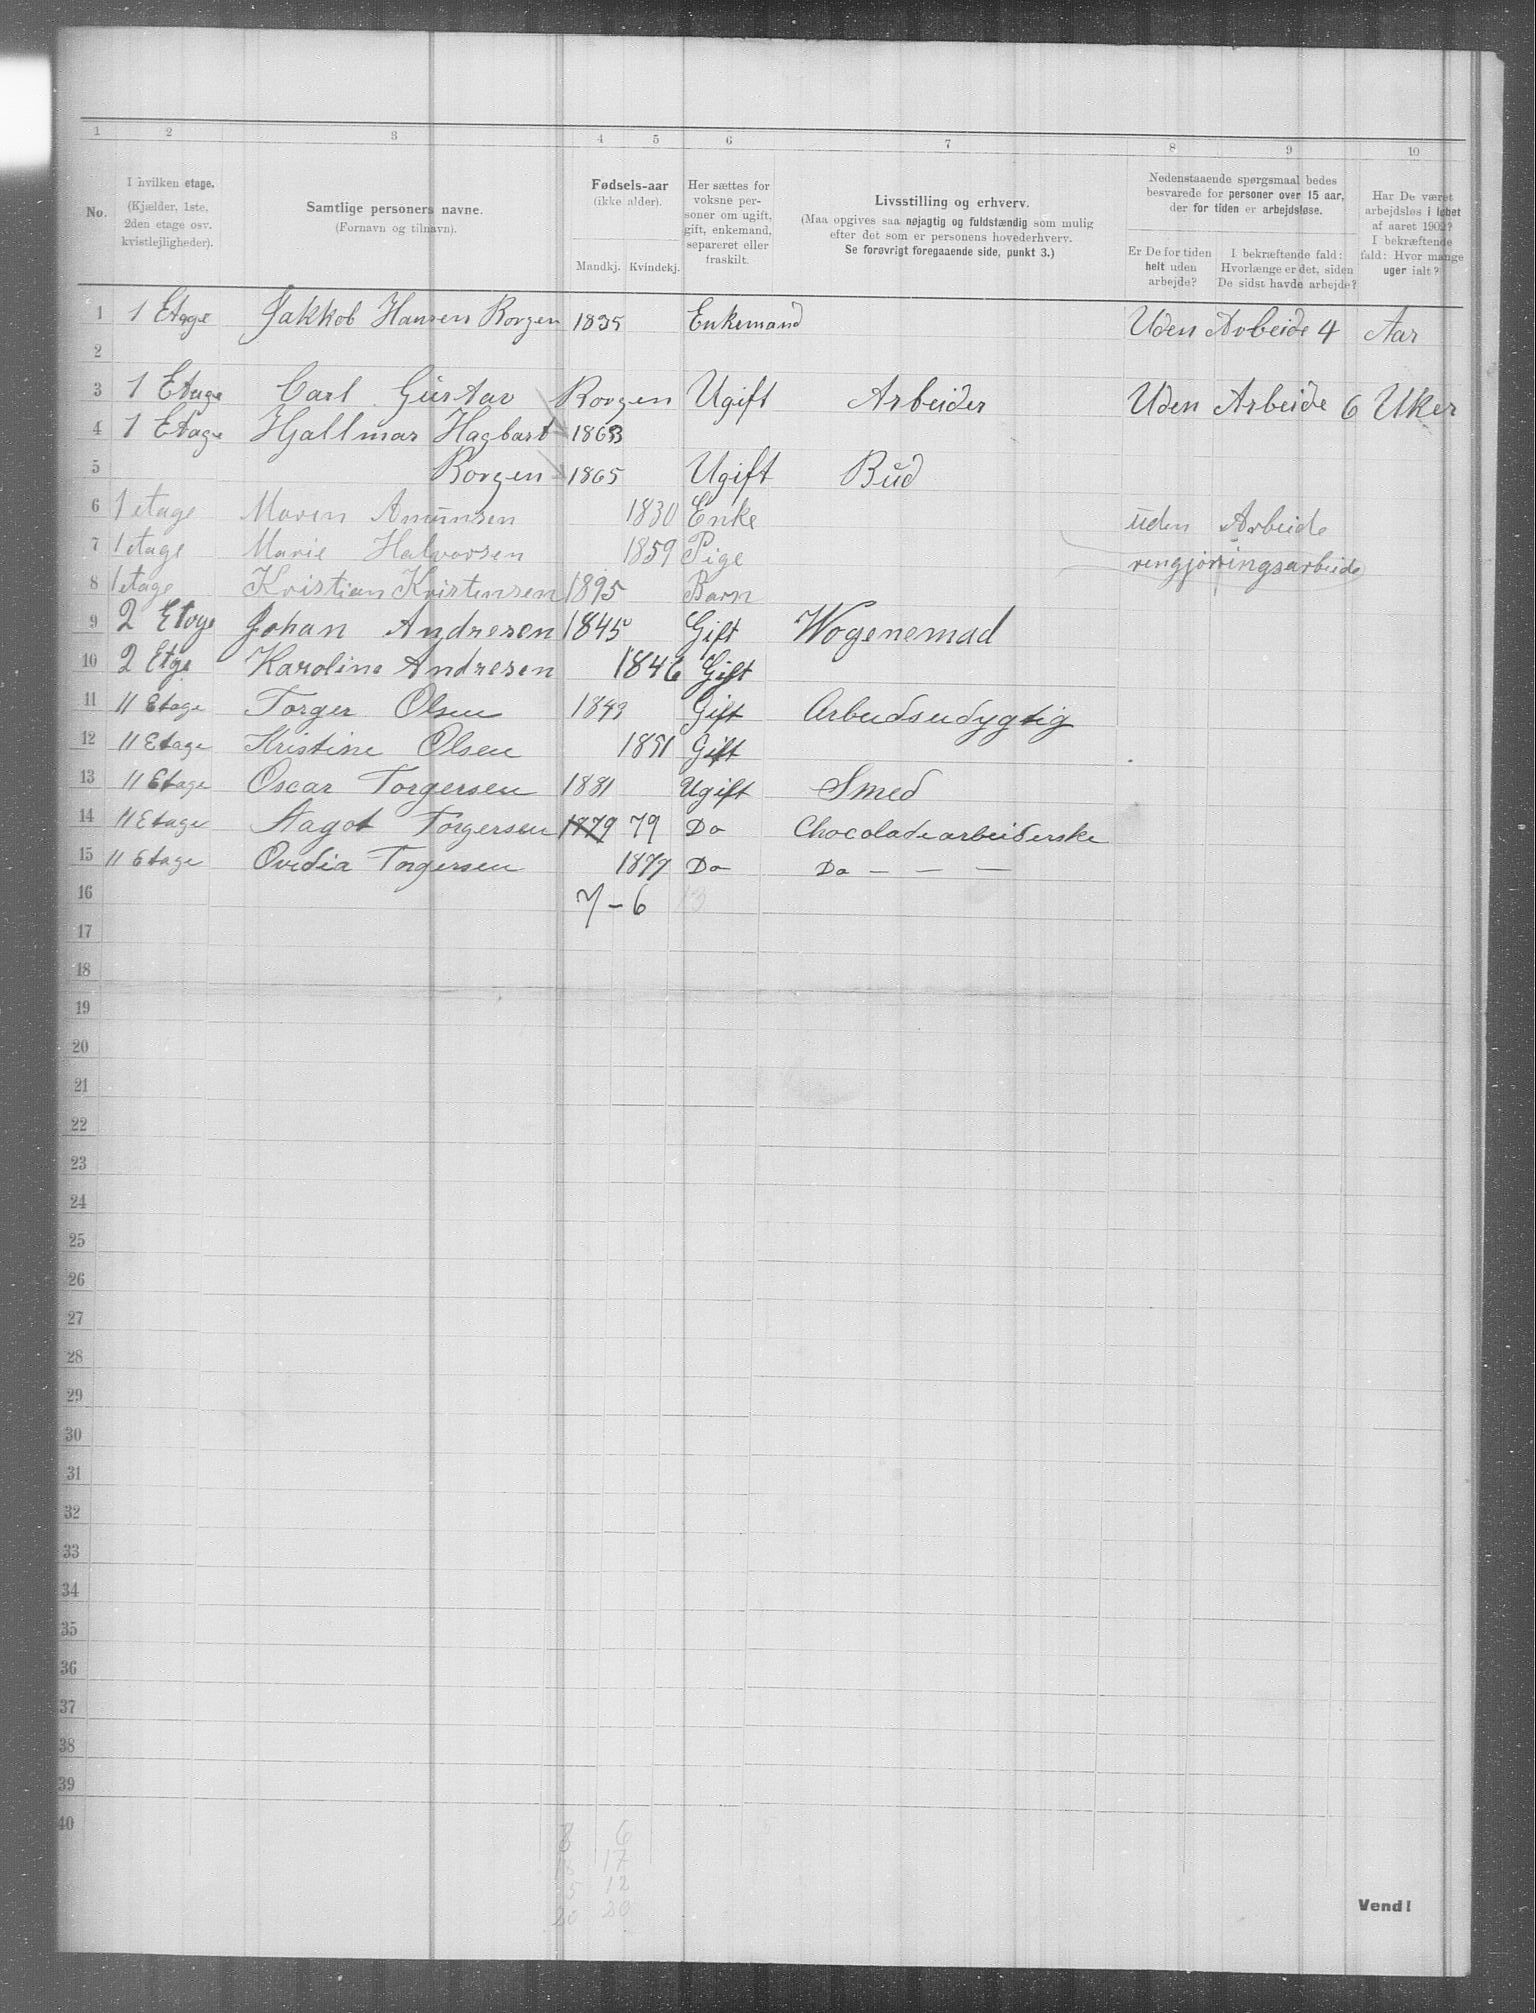 1 2 3 4 5 6 7 8 9 10
No.
I hvilken etage.
(Kjælder, 1ste,
2den etage osv.
kvistlejligheder).
Samtlige personers navne.
(Fornavn og tilnavn).
Fødsels-aar
(ikke alder).
Mandkj. Kvindekj.
Her sættes for
voksne per-
soner om ugift,
gift, enkemand,
separeret eller
fraskilt.
Livsstilling og erhverv.
(Maa opgives saa nøjagtig og fuldstændig som mulig
efter det som er personens hovederhverv.
Se forøvrigt foregaaende side, punkt 3.)
Nedenstaaende spørgsmaal bedes
besvarede for personer over 15 aar,
der for tiden er arbejdsløse.
Er De for tiden
helt uden
arbejde?
I bekræftende fald:
Hvorlænge er det, siden
De sidst havde arbejde?
Har De været
arbejdsløs i løbet
af aaret 1902?
I bekræftende
fald: Hvor mange
uger ialt?
1 1 Etage Jakkob Hansen Borgen 1835 Enkemand Uden Arbeide 4 Aar
2
3 1 Etage Carl Gustav Borgen Ugift Arbeider Uden Arbeide 6 Uker
4 1 Etage Hjallmar Hagbart 1863
5 Borgen 1865 Ugift Bud
6 1 etage Maren Amunsen 1830 Enke uden Arbeide
7 1 etage Marie Halvorsen 1859 Pige rengjøringsarbeide
8 1 etage Kristian Kristensen 1895 Barn
9 2 Etage Johan Andresen 1845 Gift Wogenemad
10 2 Etge Karoline Andresen 1846 Gift
11 11 Etage Torger Olsen 1843 Gift Arbeidsudygtig
12 11 Etage Kristine Olsen 1851 Gift
13 11 Etage Oscar Torgersen 1881 Ugift Smed
14 11 Etage Aagot Torgersen 1879 79 Do Chocoladearbeiderske
15 11 Etage Ovedia Torgersen 1877 Do Do — — —
16 7 – 6 13
17
18
19
20
21
22
23
24
25
26
27
28
29
30
31
32
33
34
35
36
37
38
39
40
8 6
18 17
5 12
20 20
Vend!